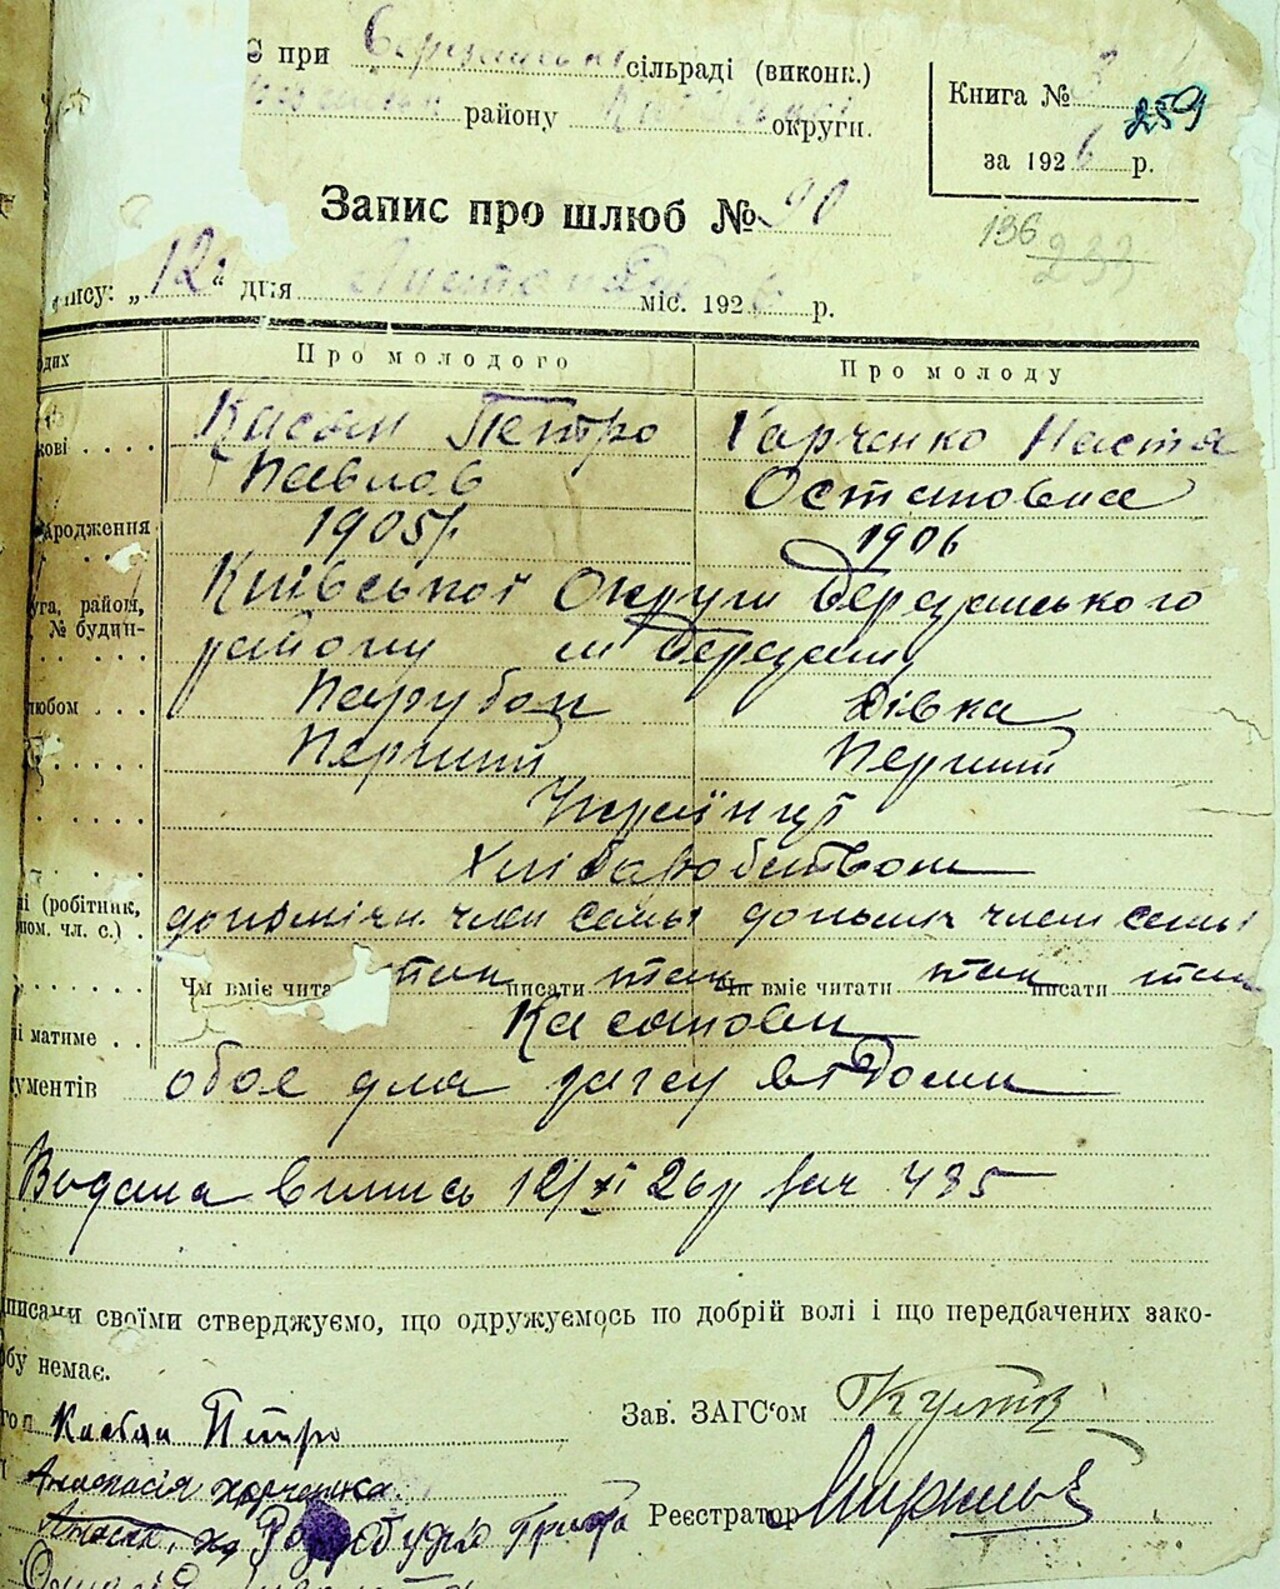 С при Березанські сільраді (виконк.)
району округи.
Книга № 3 259
за 1926 р.
Запис про шлюб № 90
136 233
пису: „12“ дня Листопаду міс. 1926 р.
одих Про молодого Про молоду
кові . . . . Касьян Петро Харченко Настя
Павлов Остаповна
ародження 1905р 1906
уга, район, Київської Округи Березанського
№ будин-
району м Березань
любом . . . Парубок Дівка
Перший Перший
Українці
Хліборобством
ні (робітник,
пом. чл. с.) . допоміжн. член семьї допоміж член семьї
Чи вміє чита так писати так Чи вміє читати так писати так
і матиме . . Касьянови
кументів обоє для загсу відоми
Водана випись 12/XI 26р зач 485
дписами своїми стверджуємо, що одружуємось по добрій волі і що передбачених зако-
бу немає.
го Касьян Петро
Зав. ЗАГС'ом
Анастасія Харченка
Реєстратор